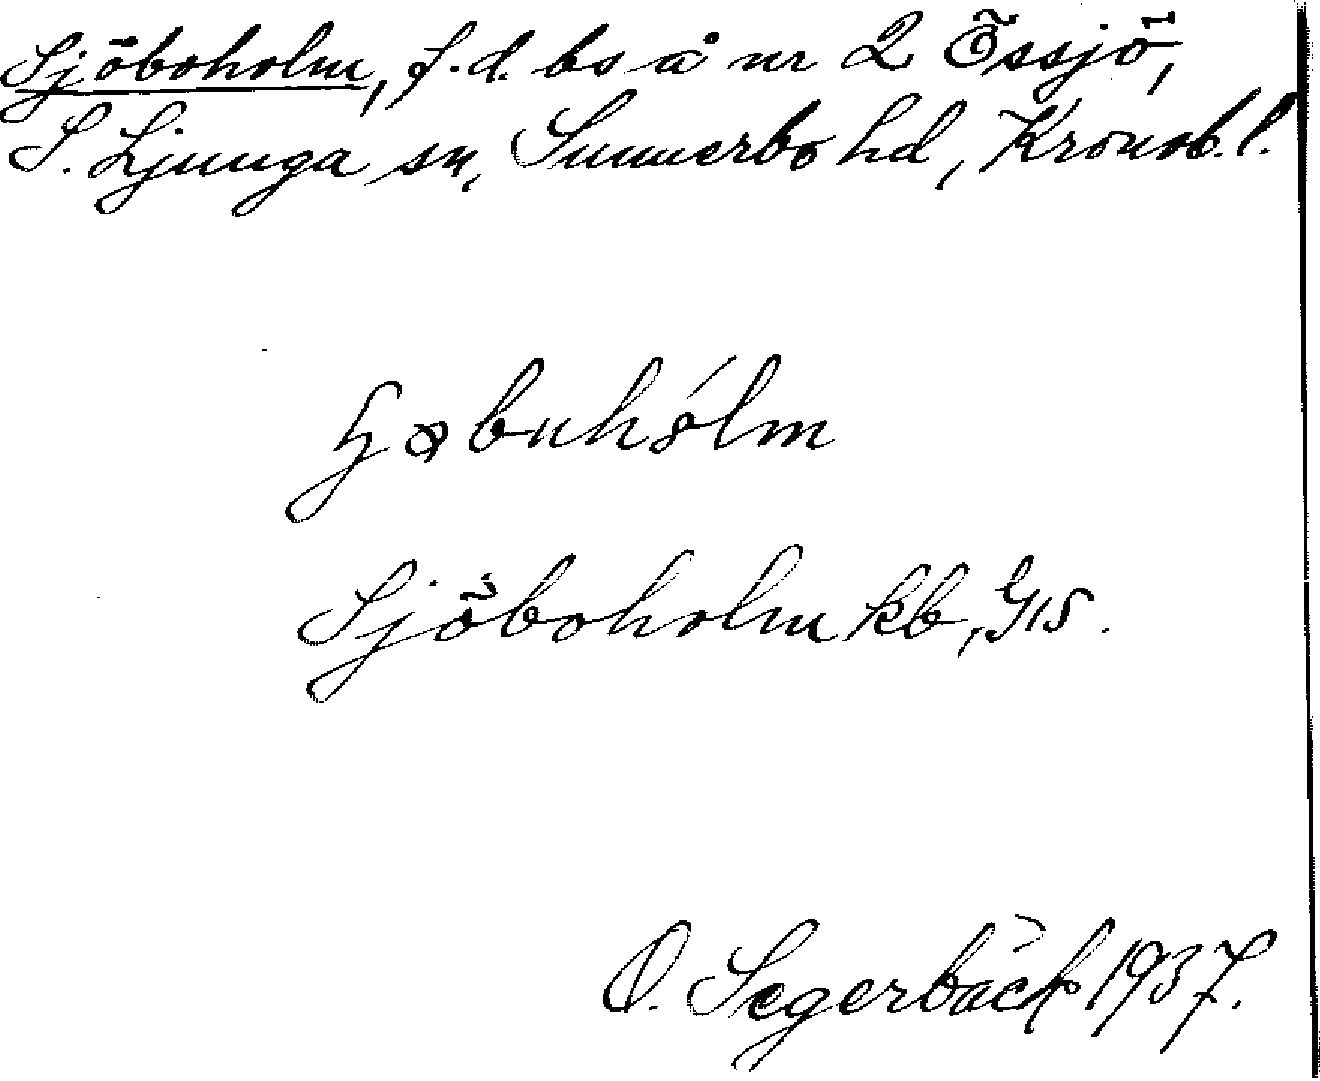 Sjöboholm, f.d. bs å nr 2 Össjö,
S. Ljunga sn, Sunnerbo hd, Kronob. l.
Sjöboholm kb, GIS.
O. Segerbäck 1937.